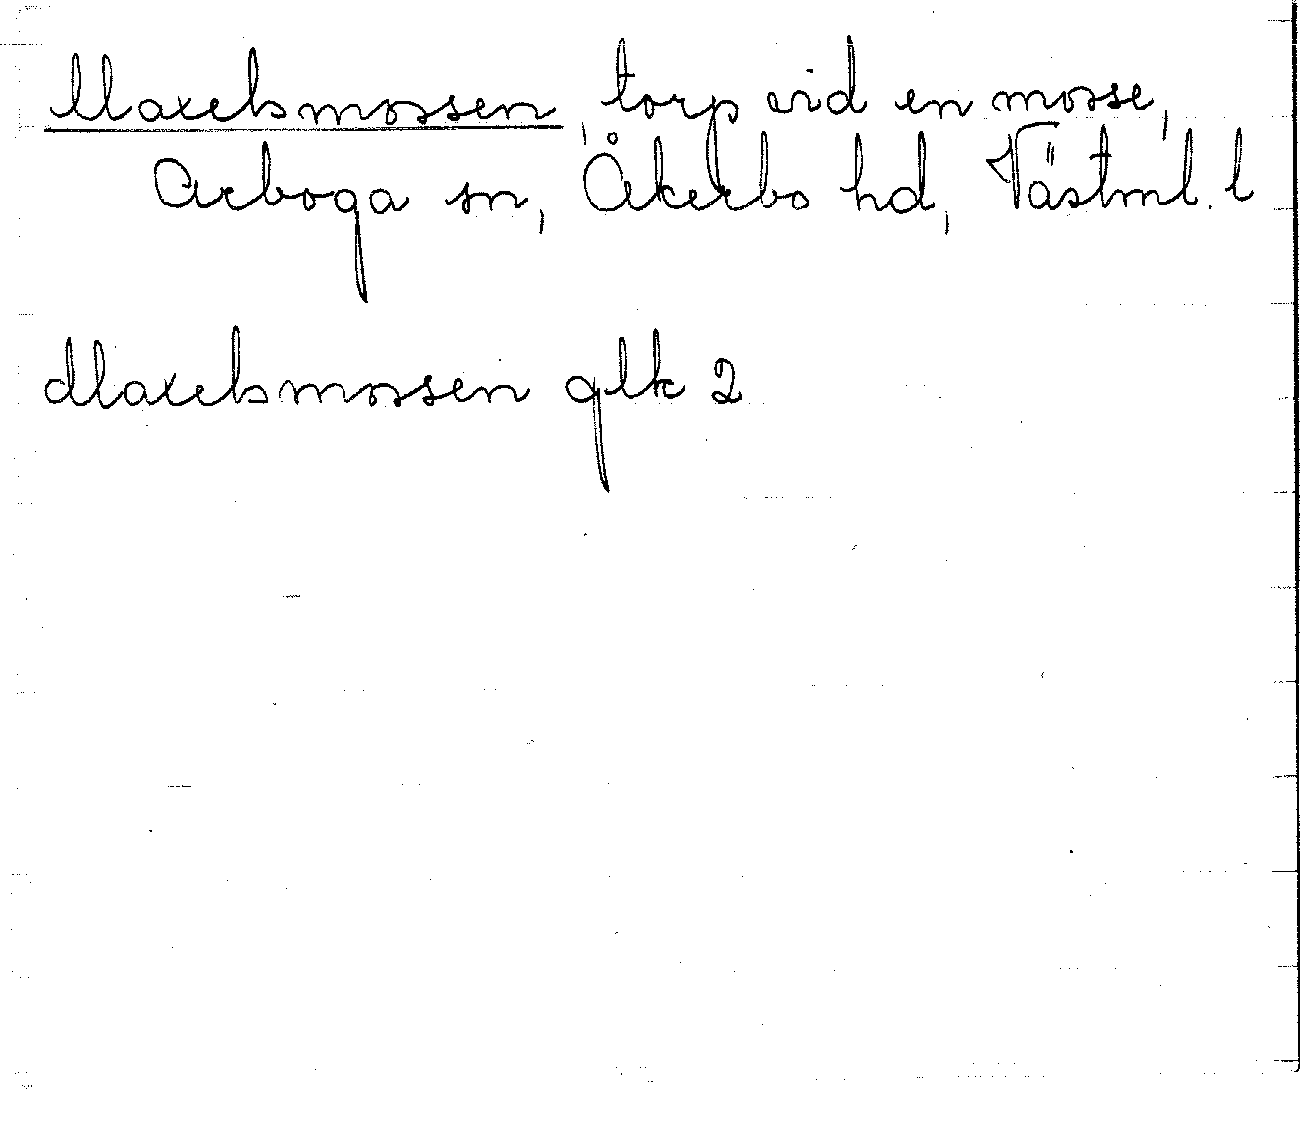 Maxelsmossen, torp vid en mosse,
Arboga sn, Åkerbo hd, Västml. l
Maxelsmossen glk 2